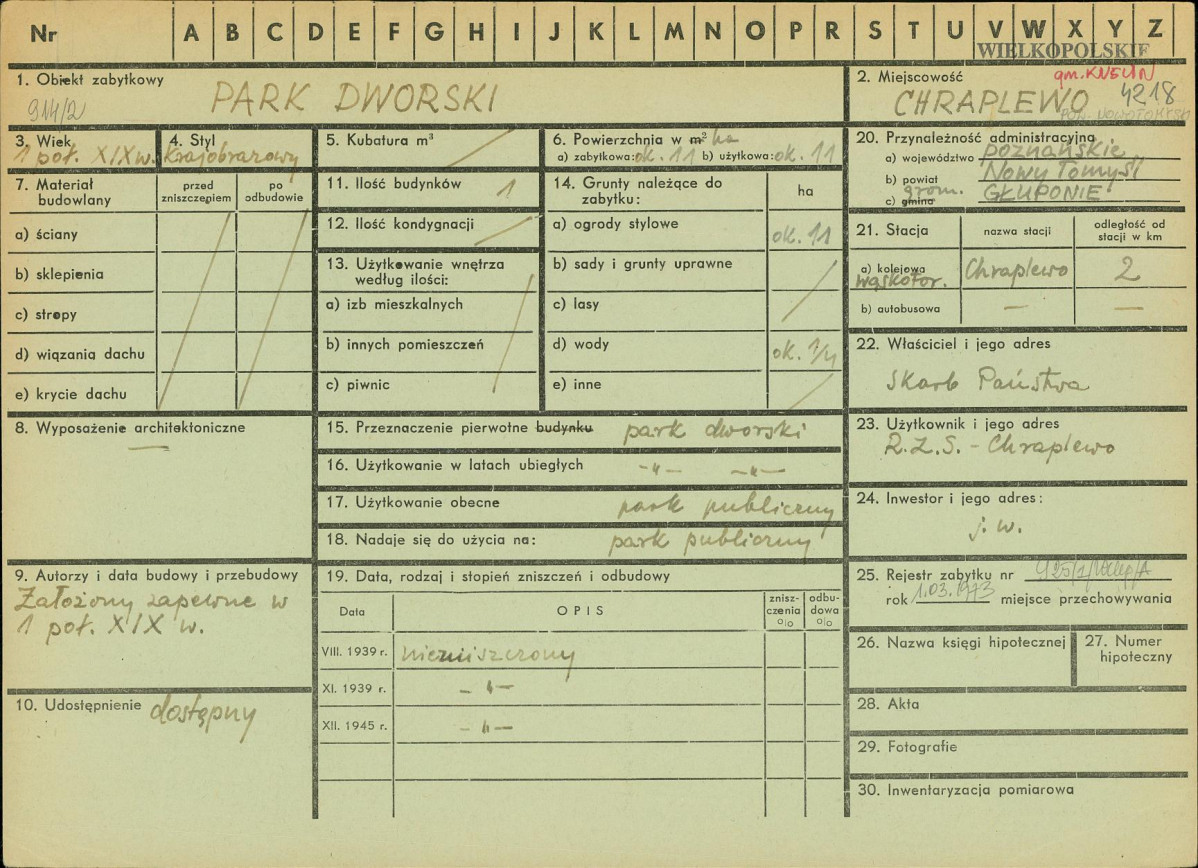 Nr A B C D E F G H I J K L M N O P R S T U V W X Y Z
WIELKOPOLSKIE
1. Obiekt zabytkowy
914/2
PARK DWORSKI
2. Miejscowość
CHRAPLEWO 4218
3. Wiek
1 poł. XIX w.
4. Styl
Krajobrazowy
5. Kubatura m³
6. Powierzchnia w m² ha
a) zabytkowa: ok. 11 b) użytkowa: ok. 11
20. Przynależność administracyjna
a) województwo poznańskie
b) powiat Nowy Tomyśl
c) gmina grom. GŁUPONIE
7. Materiał budowlany
przed zniszczegiem
po odbudowie
a) ściany
b) sklepienia
c) stropy
d) wiązania dachu
e) krycie dachu
11. Ilość budynków 1
12. Ilość kondygnacji
13. Użytkowanie wnętrza
według ilości:
a) izb mieszkalnych
b) innych pomieszczeń
c) piwnic
14. Grunty należące do
zabytku:
ha
a) ogrody stylowe ok. 11
b) sady i grunty uprawne
c) lasy
d) wody ok. 1/4
e) inne
21. Stacja
nazwa stacji
odległość od
stacji w km
a) kolejowa wąskotor. Chraplewo 2
b) autobusowa — —
22. Właściciel i jego adres
Skarb Państwa
8. Wyposażenie architektoniczne
—
15. Przeznaczenie pierwotne budynku park dworski
16. Użytkowanie w latach ubiegłych -"- -"-
17. Użytkowanie obecne park publiczny
18. Nadaje się do użycia na: park publiczny
23. Użytkownik i jego adres
R.Z.S. - Chraplewo
24. Inwestor i jego adres:
j. w.
9. Autorzy i data budowy i przebudowy
Założony zapewne w
1 poł. XIX w.
10. Udostępnienie dostępny
19. Data, rodzaj i stopień zniszczeń i odbudowy
Data
OPIS
znisz-
czenia
o/o
odbu-
dowa
o/o
VIII. 1939 r. niezniszczony
XI. 1939 r. -"-
XII. 1945 r. -"-
25. Rejestr zabytku nr
rok 1.03.1973 miejsce przechowywania
26. Nazwa księgi hipotecznej
27. Numer
hipoteczny
28. Akta
29. Fotografie
30. Inwentaryzacja pomiarowa